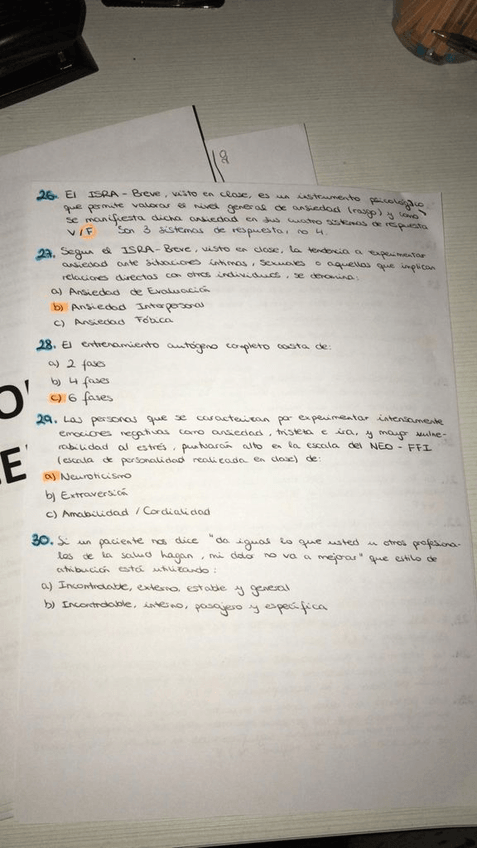 26. El ISRA - Breve, visto en clase, es un instrumento psicológico,
que permite valorar el nivel general de ansiedad (rasgo) y como
se manifiesta dicha ansiedad en sus cuatro sistemas de respuesta
V/F Son 3 sistemas de respuesta, no 4.
27. Según el ISRA - Breve, visto en clase, la tendencia a experimentar
ansiedad ante situaciones íntimas, sexuales o aquellas que implican
relaciones directas con otros individuos, se denomina:
a) Ansiedad de Evaluación
b) Ansiedad Interpersonal
c) Ansiedad Fóbica
28. El entrenamiento autógeno completo consta de:
a) 2 fases
b) 4 fases
c) 6 fases
29. Las personas que se caracterizan por experimentar intensamente
emociones negativas como ansiedad, tristeza e ira, y mayor vulne-
rabilidad al estrés, puntuarán alto en la escala del NEO - FFI
(escala de personalidad realizada en clase) de:
a) Neuroticismo
b) Extraversión
c) Amabilidad / Cordialidad
30. Si un paciente nos dice "da igual lo que usted u otros profesiona-
les de la salud hagan, mi dolor no va a mejorar" que estilo de
atribución está utilizando:
a) Incontrolable, externo, estable y general
b) Incontrolable, interno, pasajero y específica